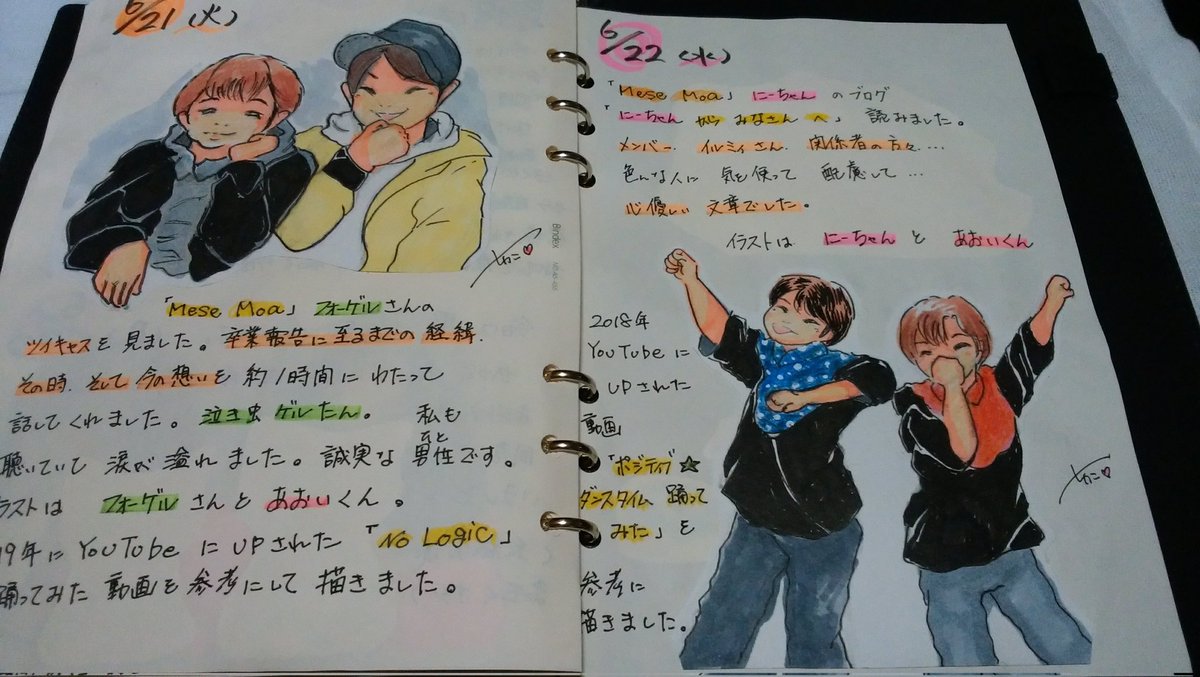 6/21(火)
「Mese Moa」フォーゲルさんの
ツイキャスを見ました。卒業報告に至るまでの経緯.
その時、そして今の想いを約1時間にわたって
話してくれました。泣き虫ゲルたん。私も
聴いていて涙が溢れました。誠実な男性です。
ひと
ラストは フォーゲルさんとあおいくん。
19年にYouTubeにUPされた「No Logic」
踊ってみた動画を参考にして描きました。
Bindex
6/22(水)
「Mese Moa」にーちゃんのブログ
「にーちゃんからみなさんへ」読みました。
メンバー、イルミィさん、関係者の方々…
色んな人に気を使って配慮して…
心優しい文章でした。
イラストは にーちゃんと あおいくん
2018年
YouTubeに
UPされた
動画
「ポジティブ☆
ダンスタイム踊って
みた」を
参考に
描きました。